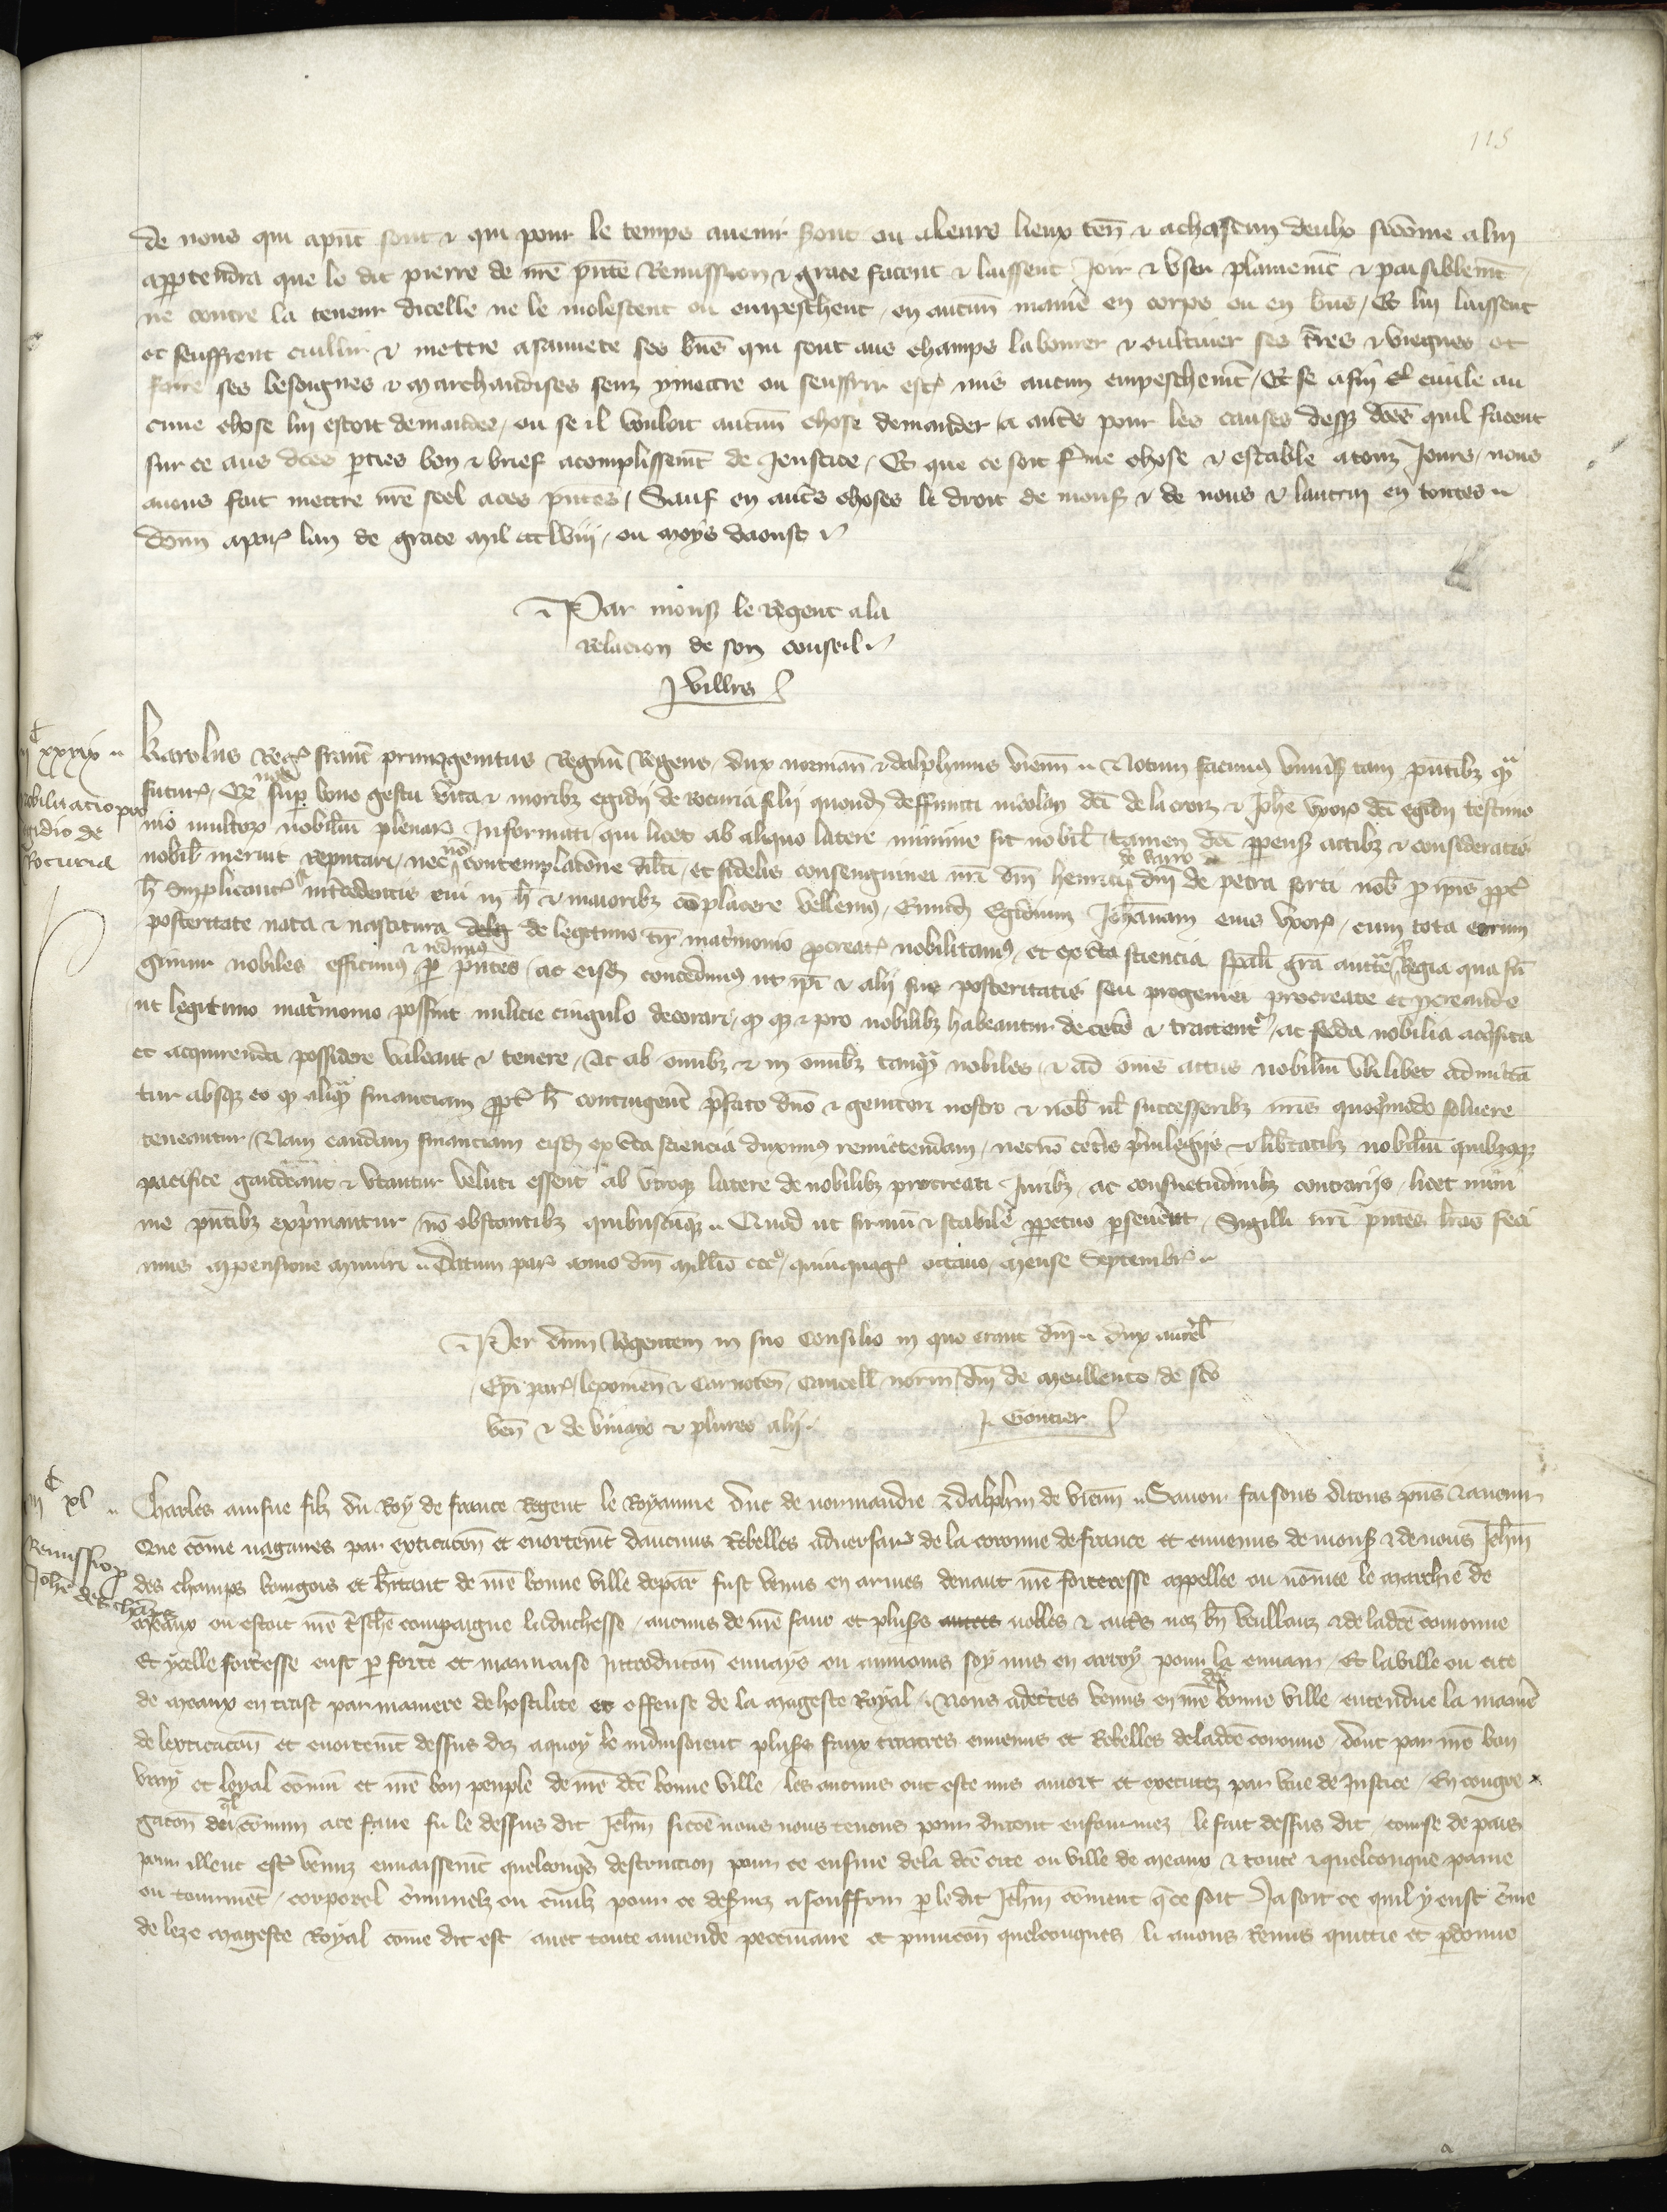 115
de nous qui apñt sont & qui pour le temps avenir seront ou a leurs lieux ten̄ & a chascun deulx sicōme a lui
appartendra que le dit pierre de nr̄e p̄nte Remission & grace facent & laissent Joir & user plainemt̄ & paisiblemt̄
ne contre la teneur dicelle ne le molestent ou empeschent en aucun̄ manie᷑ en corps ou en biēs / Et lui laissent
et seuffrent cuillir & mettre a sauvete ses biēs qui sont aus champs labourer & cultiver ses t̄res & vignes et
faire ses besoignes & marchandises senz y mettre ou seuffrir estre mis aucun empeschemt̄ / Et se a fin civile au
cune chose lui estoit demandee / ou se il vouloit aucun̄ chose demander a autr̄s pour les causes dessus dc̄es quil facent
sur ce aus dc̄es p̱ties bon & brief acomplissemt̄ de Justice / Et que ce soit ferme chose & estable a touz Jours / nous
avons fait mettre nr̄e seel a ces p̄ntes / Sauf en autr̄s choses le droit de mons̄ & de nous & lautrui en toutes
Donn̄ a par̄ lan de grace mil ccclviij / ou moys daoust
Par mons̄ le Regent a la
Relacion de son conseil
J villrs
iijᶜ xxxix
Nobilitatio pro
Egidio de
Rocuria
Karolus Reg̃ franc̄ primogenitus Regnū Regens / dux norman̄ & dalphinus vienn̄ Notum facimus univ̄sis tam p̄ntibz q̄
futur̄ / Qd nos sup̱ bono gestu vita & moribz egidij de Rocuria filij quond̄ deffuncti nicolay dc̄i de la croiz & Joh̄e uxor̄ dc̄i egidij testimo
nio multor̄ nobiliū plenar̄ Informati qui licet ab aliquo latere minime sit nobil̄ tamen dc̄i p̱pens̄ actibz & consideratis
nobil̄ meruit reputari / nec nō contemplac̄one dil̄ti et fidelis consanguinei nr̄i dn̄i henrici de barro dn̄i de petra forti nob̄ p̱ ip̄is p̱pt̄
h̄ supplicant̄ & int̄cedentis cui in h̄ & maioribz cōplacere vellemus / Eund̄ Egidium Joh̄annam eius uxor̄ / cum tota eorum
posteritate nata & nascitura de legitimo tn̄ mat̄rimonio p̱creat̄ nobilitamus / et ex c̄ta sciencia sp̄ali gr̄a auct̄te Regia qua fū
gimur nobiles efficimus & redimus p̱ p̄ntes / ac eisd̄ concedimus ut ip̄i & alij sue posteritatis seu progeniei procreate et p̱creande
ut legitimo mat̄rimonio possint milicie cingulo decorari / q̱ q̱ & pro nobilibz habeantur de cet̄o & tractent̄ / ac feoda nobilia acq̄sita
et acquirenda possidere valeant & tenere / Ac ab omībz & in omībz tanq̄ nobiles / & ad om̄es actus nobiliū ubilibet admittā
tur absq̱ eo q̱ aliq̄ financiam p̱pt̄ h̄ contingen̄t p̄fato dn̄o & genitori nostro & nob̄ ul̄ successoribz nr̄is quoq̄modo solvere
teneantur / Nam eandam financiam eisd̄ ex c̄ta sciencia duximus remictendam / necnō cet̄is p̄vilegijs & lib̄tatibz nobiliū quibzq̱
pacifice gaudeant & utantur veluti essent ab utroq̱ latere de nobilibz procreati Juribz ac consuetudinibz contrarijs / licet mini
me p̄ntibz exp̄mantur nō obstantibz quibuscūq̱ Quod ut firmū & stabile p̱petuo p̱sev̄et Sigilli nr̄i p̄ntes l̄ras feci
mus appensione muniri Datum par̄ anno dn̄i mill̄io cccº / quinquag̃ octavo / mense Septembr̄
Per dn̄m Regentem in suo Consilio in quo erant dn̄i dux aurel̄
Ep̄i par̄ / lexonien̄ & Carnoten̄ / Cancell̄ norm̄ / dn̄i de meullento de sc̄o
ven̄ & de vinayo & plures alij
J. Gontier
iijᶜ xl
Remissio p̱
Joh̄e des chāps
Charles ainsne filz du Roy de france Regent le Royaume Duc de normandie & dalphin de vienn̄ Savoir faisons a touz p̄ns & avenir
Que cōme nagaires par exticacōn et enortemt̄ daucuns Rebelles adversair̄ de la coronne de france et ennemis de mons̄ & de nous Jeh̄n
des champs bourgois et h̄itant de nr̄e bonne ville de par̄ fust venus en armes devant nr̄e forteresse appellee ou nōmee le marchie de
meaux ou estoit nr̄e t̄schr̄e compaigne la duchesse / aucuns de nr̄e sanc et plus̄s nobles & autr̄s noz bn̄ veullanz & de ladc̄e coronne
Et ycelle fort̄esse eust p̱ force et mauvaise Introducōn envaye ou aumoins soy mis en arroy pour la envair / Et la ville ou cite
de meaux entrast par maniere de hostilite et offense de la mageste Royal / Nous adecertes venus en nr̄e dc̄e bonne ville entendue la manie᷑
de lexticacōn et enortemt̄ dessus diz a quoy le induisoient plus̄s faux traitres ennemis et Rebelles de ladc̄e coronne / dont par nr̄e bon
vray et loyal cōmū et nr̄e bon peuple de nr̄e dc̄e bonne ville les aucuns ont este mis a mort et executez par voie de Justice / En congre
gacōn du q̄l cōmun a ce faire fu le dessus dit Jeh̄n sicōe nous nous tenons pour dicont enformez le fait dessus dit / course de pais
pour illeuc estr̄ venuz envaissemt̄ quelconq̄s destruction pour ce ensuie de la dc̄e cite ou ville de meaux & toute & quelconque paine
ou tourmēt / corporel c̄minelz ou civilz pour ce desservz a souffrir p̱ le dit Jeh̄n cōment q̄ ce soit Ja soit ce quil y eust c̄me
de leze mageste Royal cōme dit est / avec toute amende peccuniaire et punicōn quelconques li avons Remis quittie et p̱donne